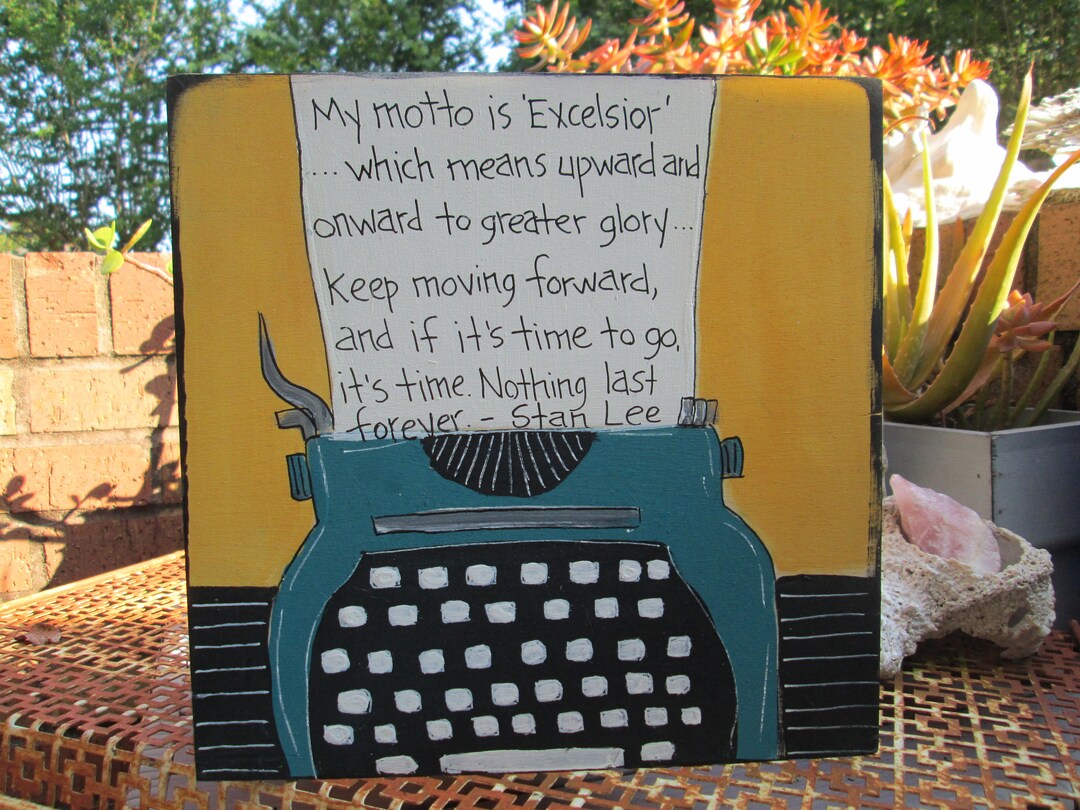 My motto is 'Excelsior'
... which means upward and
onward to greater glory...
Keep moving forward,
and if it's time to go,
it's time. Nothing last
forever. - Stan Lee